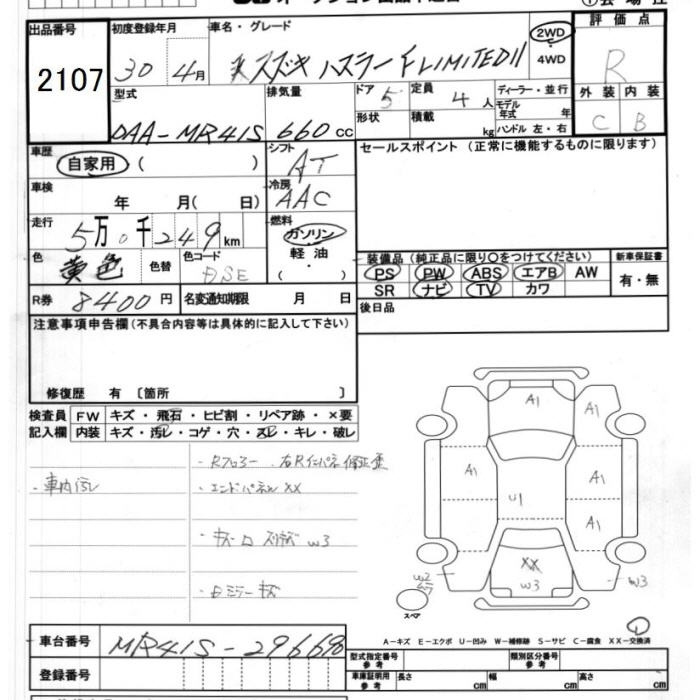 出品番号
2107
初度登録年月
30 4月
車名・グレード
スズキ ハスラー F LIMITEDII
2WD
4WD
評価点
R
外装 内装
C B
型式
DAA-MR41S
排気量
660 cc
ドア 5
形状
定員 4 人
積載 kg
ディーラー・並行
モデル年式 年
ハンドル 左・右
車歴
自家用 ( )
シフト
AT
セールスポイント (正常に機能するものに限ります)
車検
年 月( 日)
冷房
AAC
走行
5万0千249km
燃料
ガソリン
軽油
( )
色
黄色
色替
色コード
R券
8400円
名変通知期限 月 日
装備品 (純正品に限り〇をつけてください)
PS PW ABS エアB AW
SR ナビ TV カワ
新車保証書
有・無
後日品
注意事項申告欄 (不具合内容等は具体的に記入して下さい)
修復歴 有 〔箇所 〕
検査員 FW キズ・飛石・ヒビ割・リペア跡・×要
記入欄 内装 キズ・汚レ・コゲ・穴・スレ・キレ・破レ
・車内汚レ
・Rフロアー 右Rインパネ修正歪
・エンドパネル XX
W3
・Dミラーキズ
A1 A1
A1 A1
U1 A1
XX
W3
W2
W3
スペア
A-キズ E-エクボ U-凹み W-補修跡 S-サビ C-腐食 XX-交換済
車台番号
MR41S-296696
登録番号
型式指定番号 参考
類別区分番号 参考
車庫証明用 参考
長さ cm 幅 cm 高さ cm